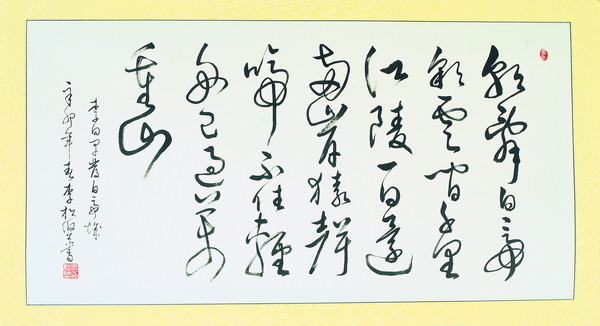 朝辭白帝
彩雲間千里
江陵一日還
兩岸猿聲
啼不住輕
舟已過萬
重山
李白早發白帝城
辛卯年春李松書